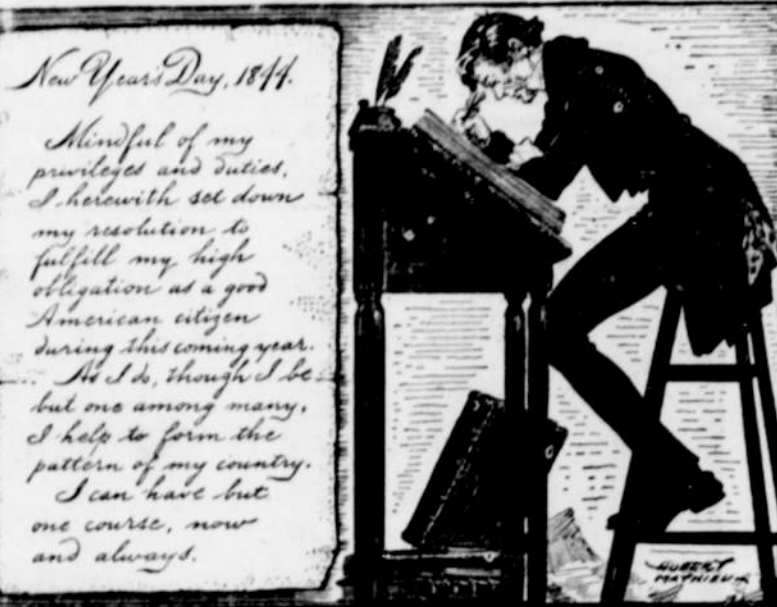 New Years Day, 1844.
Mindful of my
privileges and duties,
I herewith set down
my resolution to
fulfill my high
obligation as a good
American citizen
during this coming year.
As I do, though I be
but one among many,
I help to form the
pattern of my country.
I can have but
one course, now
and always.
HUBERT
MATHIEU